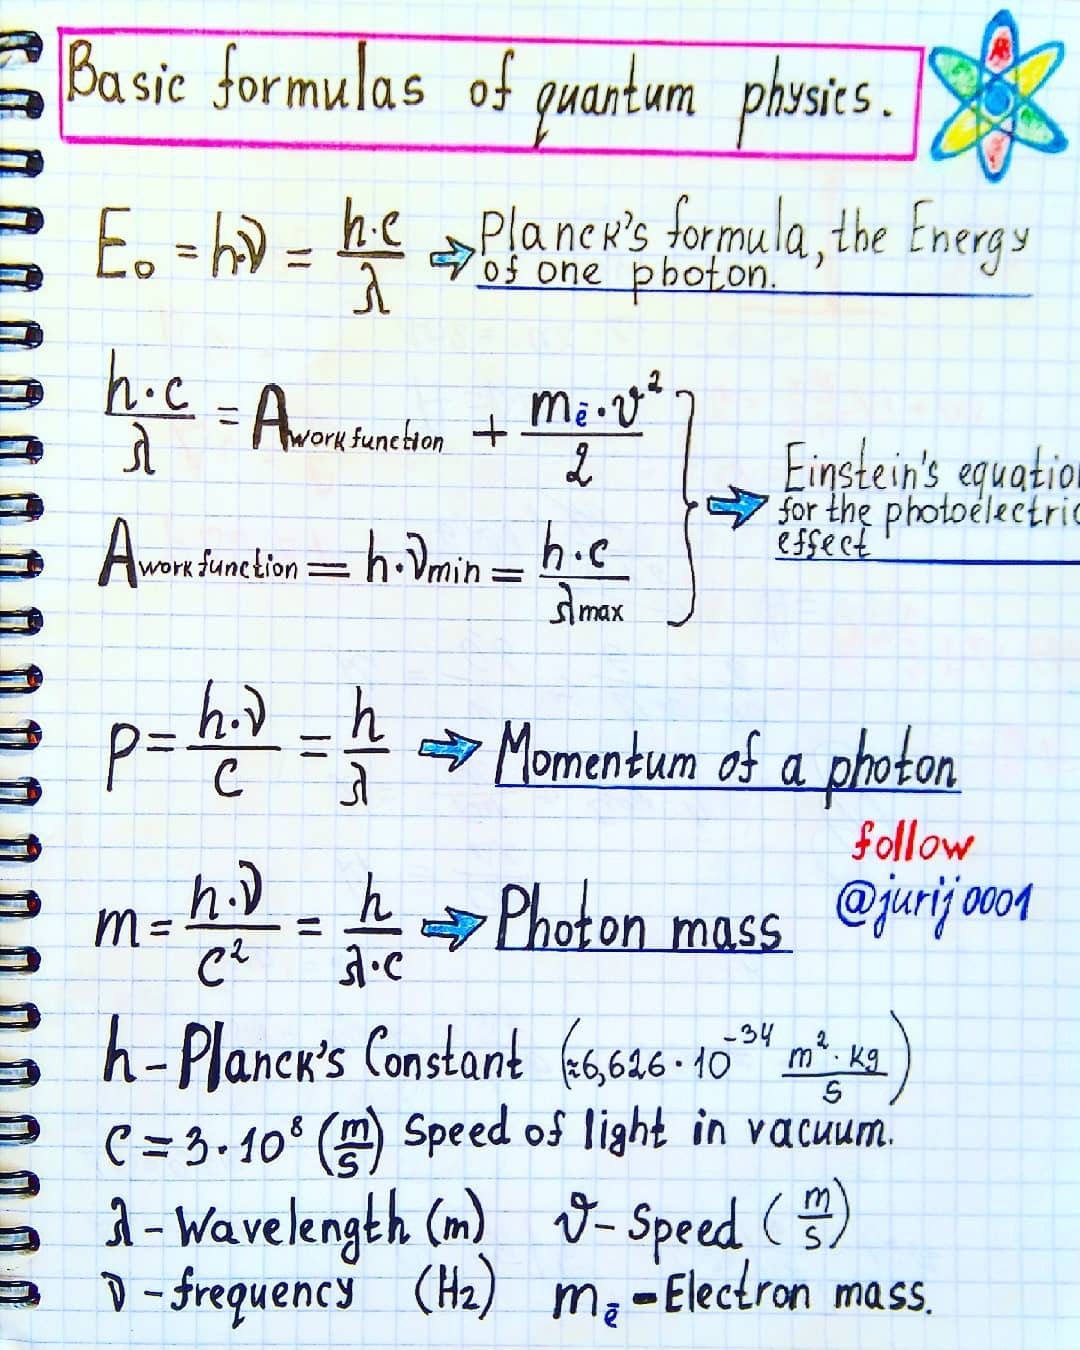 Basic formulas of quantum physics.
E₀ = h·ν = h·c/λ ⇒ Planck's formula, the Energy
of one photon.
h·c/λ = A work function + mē·ϑ²/2
A work function = h·νmin = h·c/λmax
Einstein's equation
for the photoelectric
effect
P = h·ν/c = h/λ ⇒ Momentum of a photon
follow
@jurij0001
m = h·ν/c² = h/λ·c ⇒ Photon mass
h - Planck's Constant (≈6,626·10⁻³⁴ m²·kg/s)
c = 3·10⁸ (m/s) Speed of light in vacuum.
λ - Wavelength (m) ϑ - Speed (m/s)
ν - frequency (Hz) mē - Electron mass.